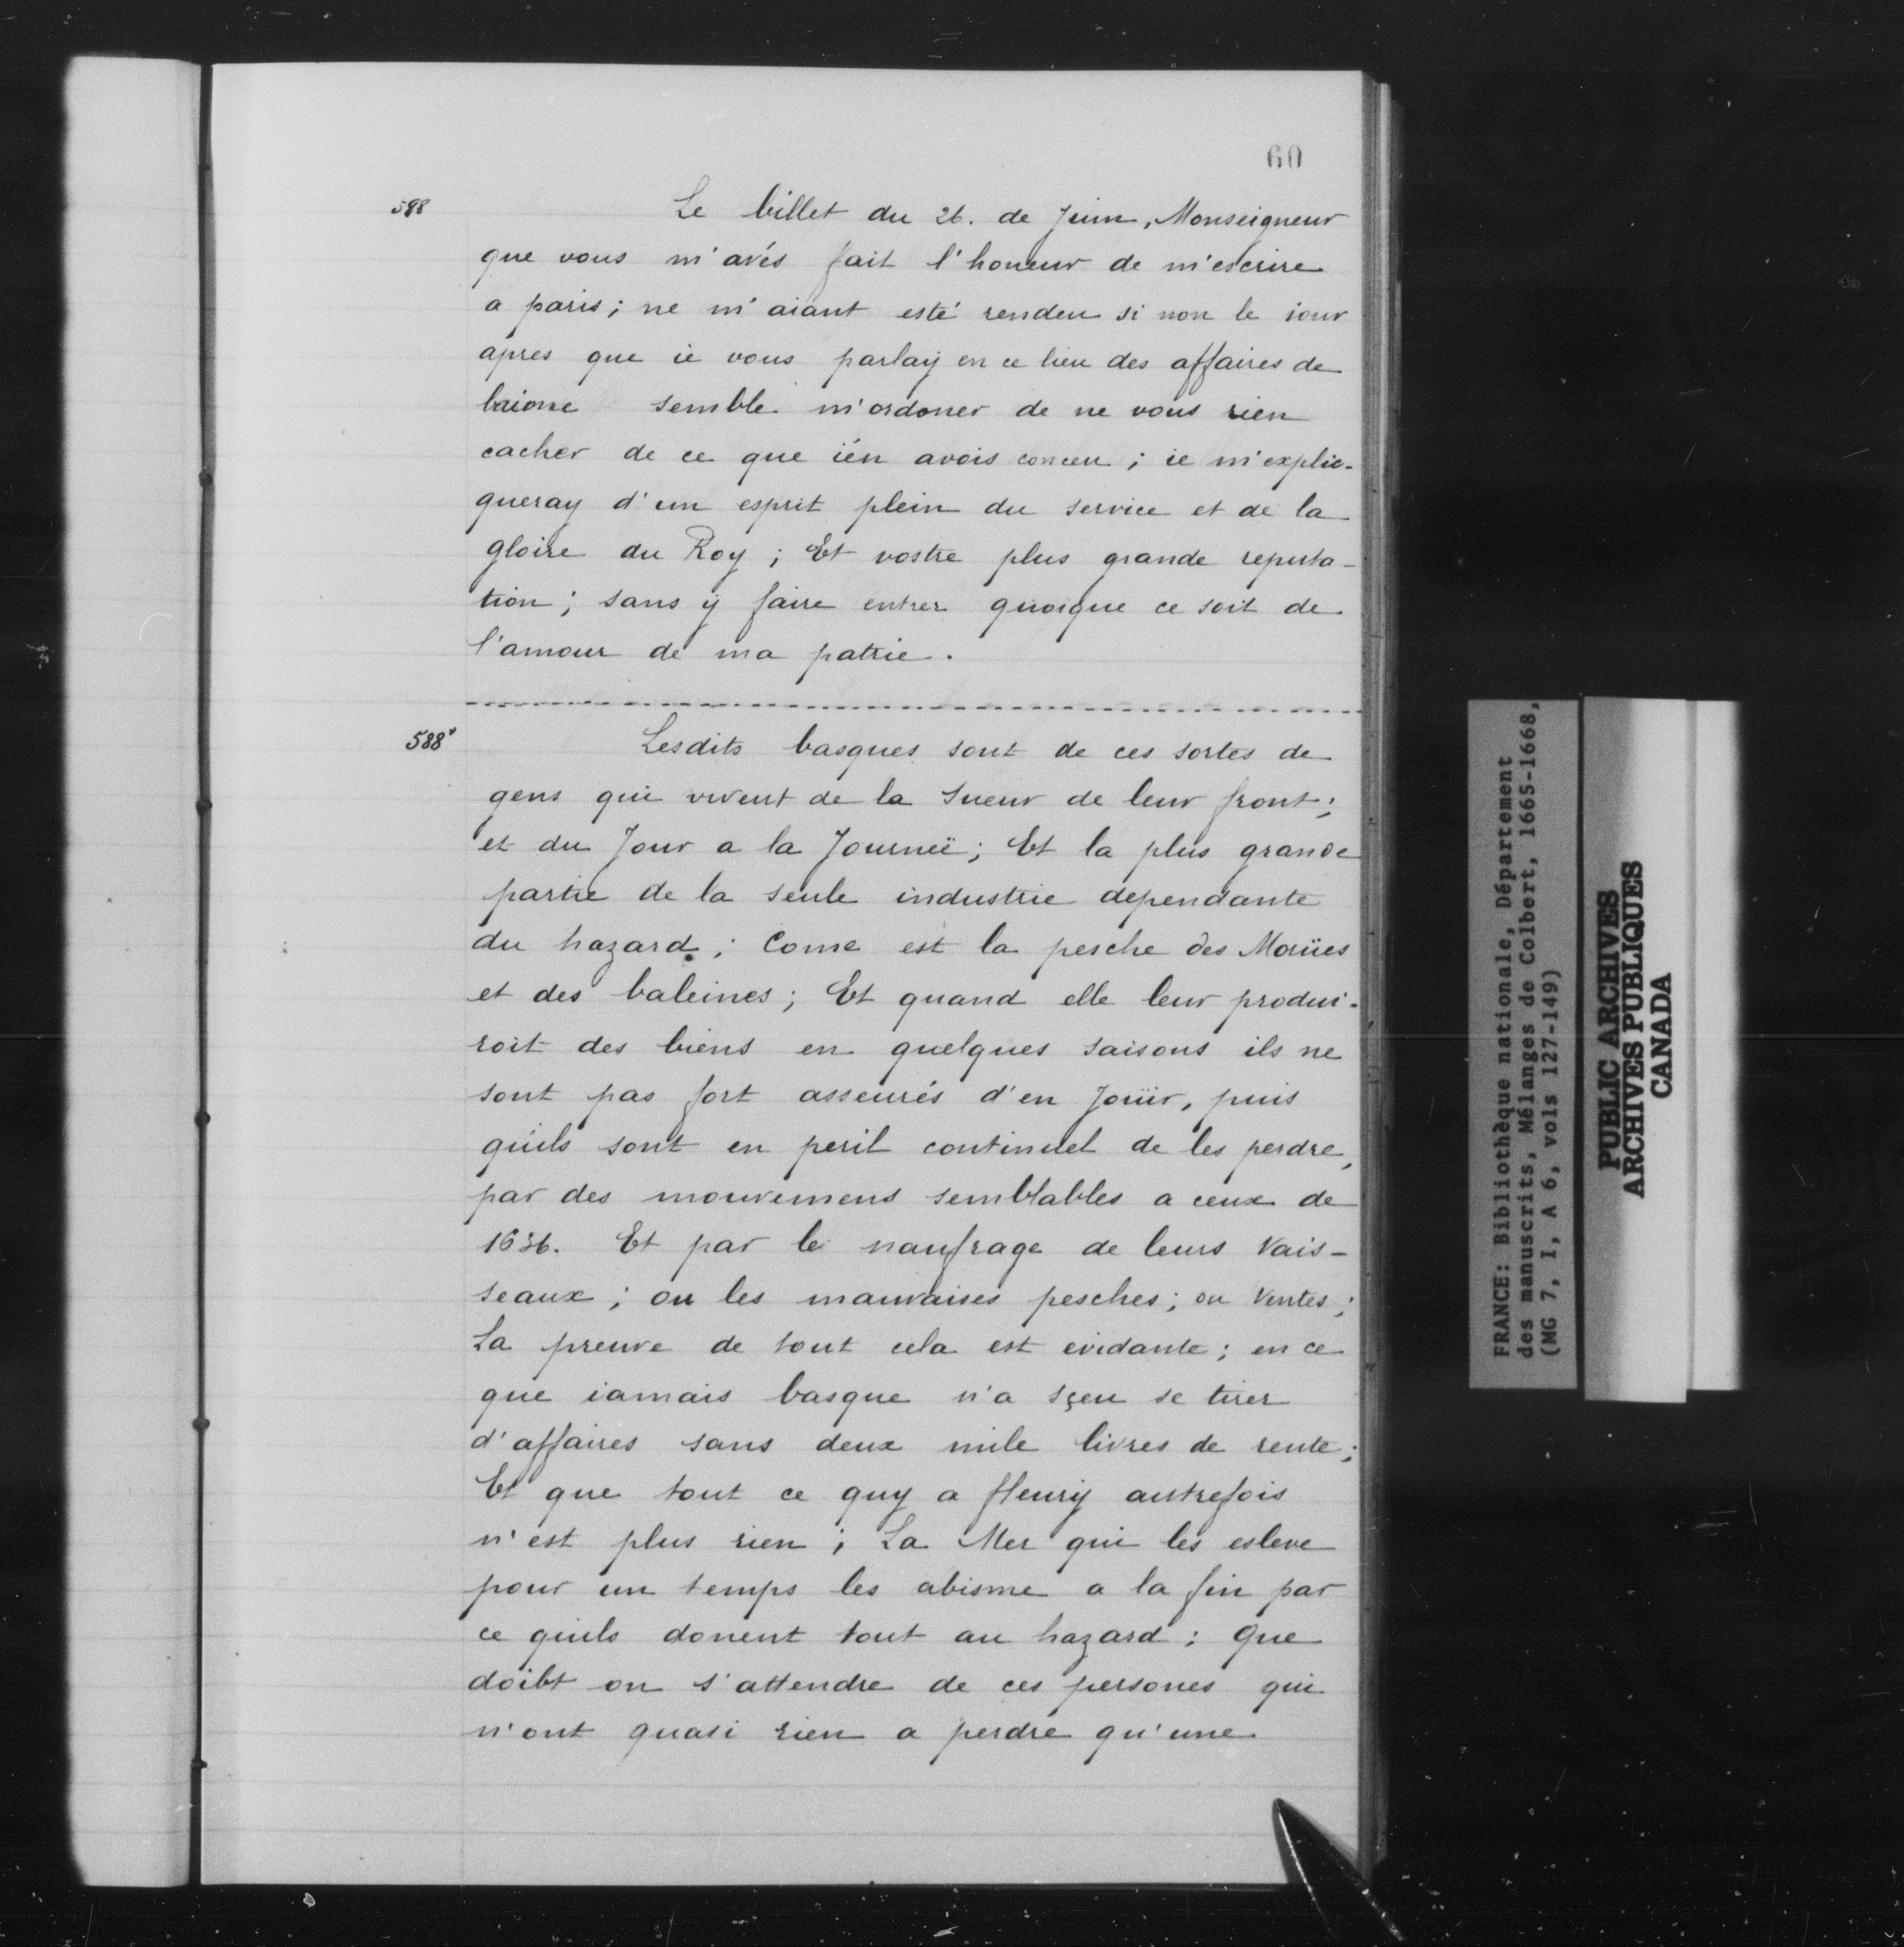 60
588
Le billet du 26. de Juin, Monseigneur
que vous m'avés fait l'honeur de m'escrire
a paris; ne m'aiant esté rendeu si non le iour
apres que ie vous parlaÿ en ce lieu des affaires de
baione semble m'ordoner de ne vous rien
cacher de ce que i'én avois conceu; ie m'explic-
queray d'un esprit plein du service et de la
gloire du Roy; Et vostre plus grande reputa-
tion; sans ÿ faire entrer quoique ce soit de
l'amour de ma patrie.
588v
Lesdits basques sont de ces sortes de
gens qui vivent de la Sueur de leur front;
et du Jour a la Journeë; Et la plus grande
partie de la seule industrie dependante
du hazard; Come est la pesche des Morües
et des baleines; Et quand elle leur produi-
roit des biens en quelques saisons ils ne
sont pas fort asseurés d'en Joüir, puis
qu'ils sont en peril continuel de les perdre,
par des mouvemens semblables a ceux de
1636. Et par le naufrage de leurs Vais-
seaux; ou les mauvaises pesches; ou Ventes;
La preuve de tout cela est evidante; en ce
que iamais basque n'a sçeu se tirer
d'affaires sans deux mile livres de rente;
Et que tout ce quy a fleurÿ autrefois
n'est plus rien; La Mer qui les esleve
pour un temps les abisme a la fin par
ce qu'ils donent tout au hazard: Que
doibt on s'attendre de ces persones qui
n'ont quasi rien a perdre qu'une
FRANCE: Bibliothèque nationale, Département
des manuscrits, Mélanges de Colbert, 1665-1668,
(MG 7, I, A 6, vols 127-149)
PUBLIC ARCHIVES
ARCHIVES PUBLIQUES
CANADA